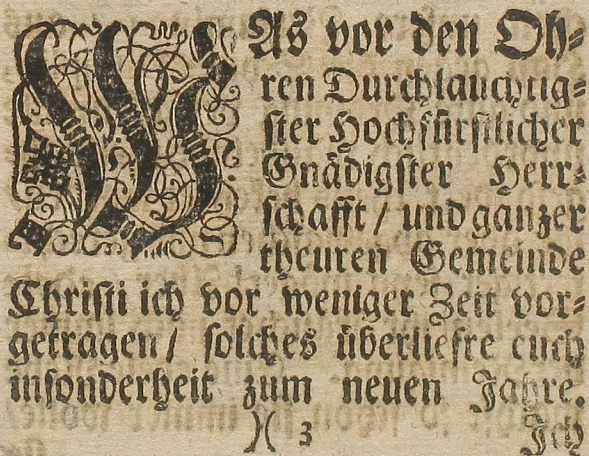 WAs vor den Oh⸗
ren Durchlauchtig⸗
ster Hochfürstlicher
Gnädigster Herr⸗
schafft / und ganzer
theuren Gemeinde
Christi ich vor weniger Zeit vor⸗
getragen / solches überliefre euch
insonderheit zum neuen Jahre.
)( 3
Ich